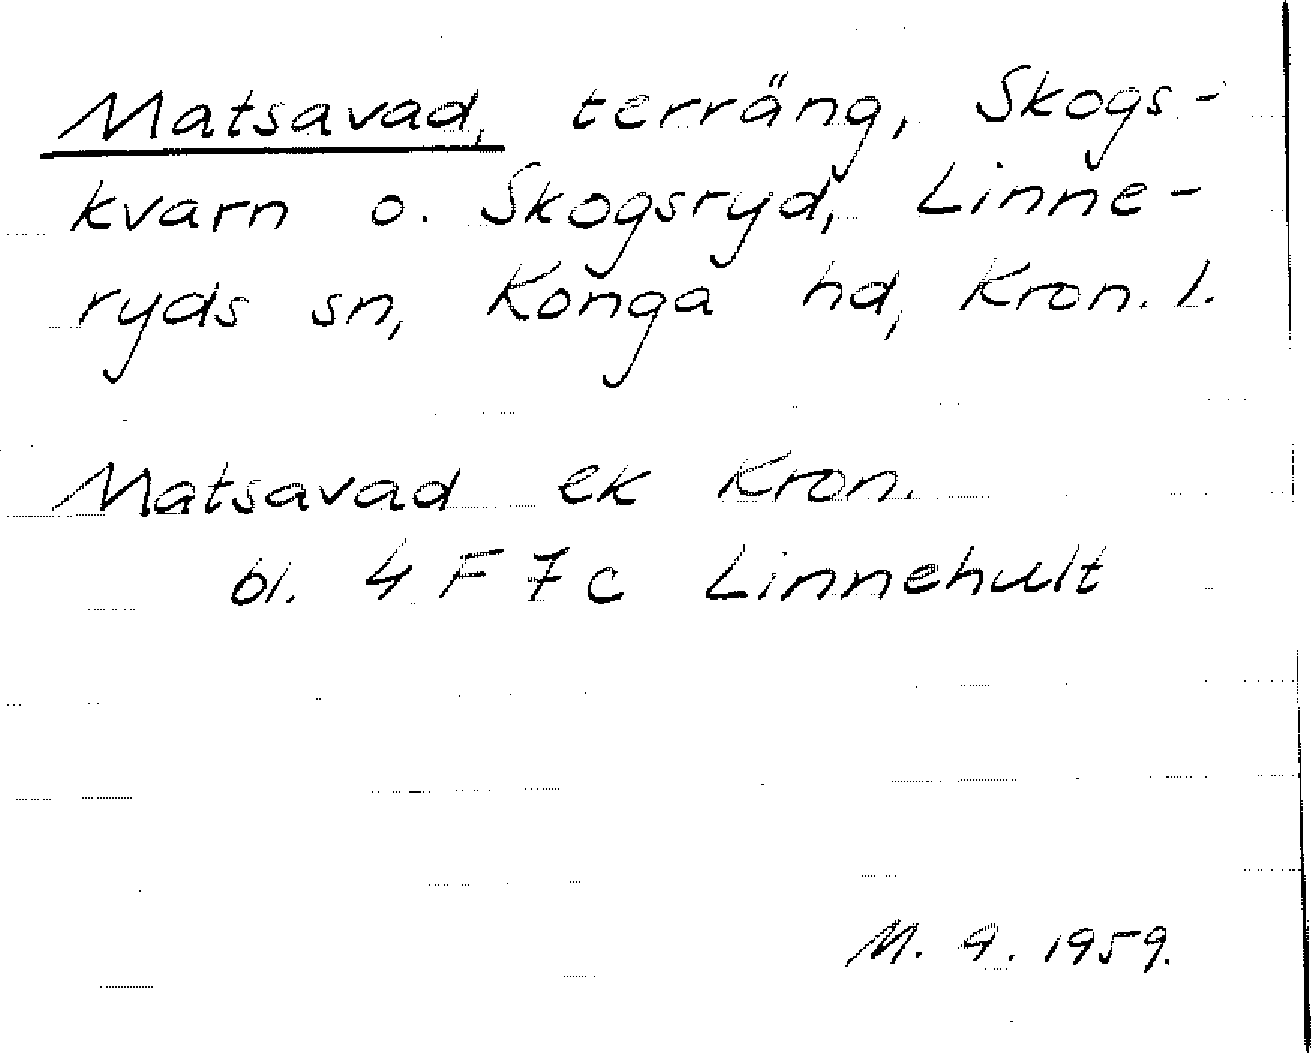 Matsavad, terräng, Skogs-
kvarn o. Skogsryd, Linne-
ryds sn, Konga hd, Kron. l.
Matsavad ek Kron.
bl. 4 F 7 c Linnehult
M. A. 1959.